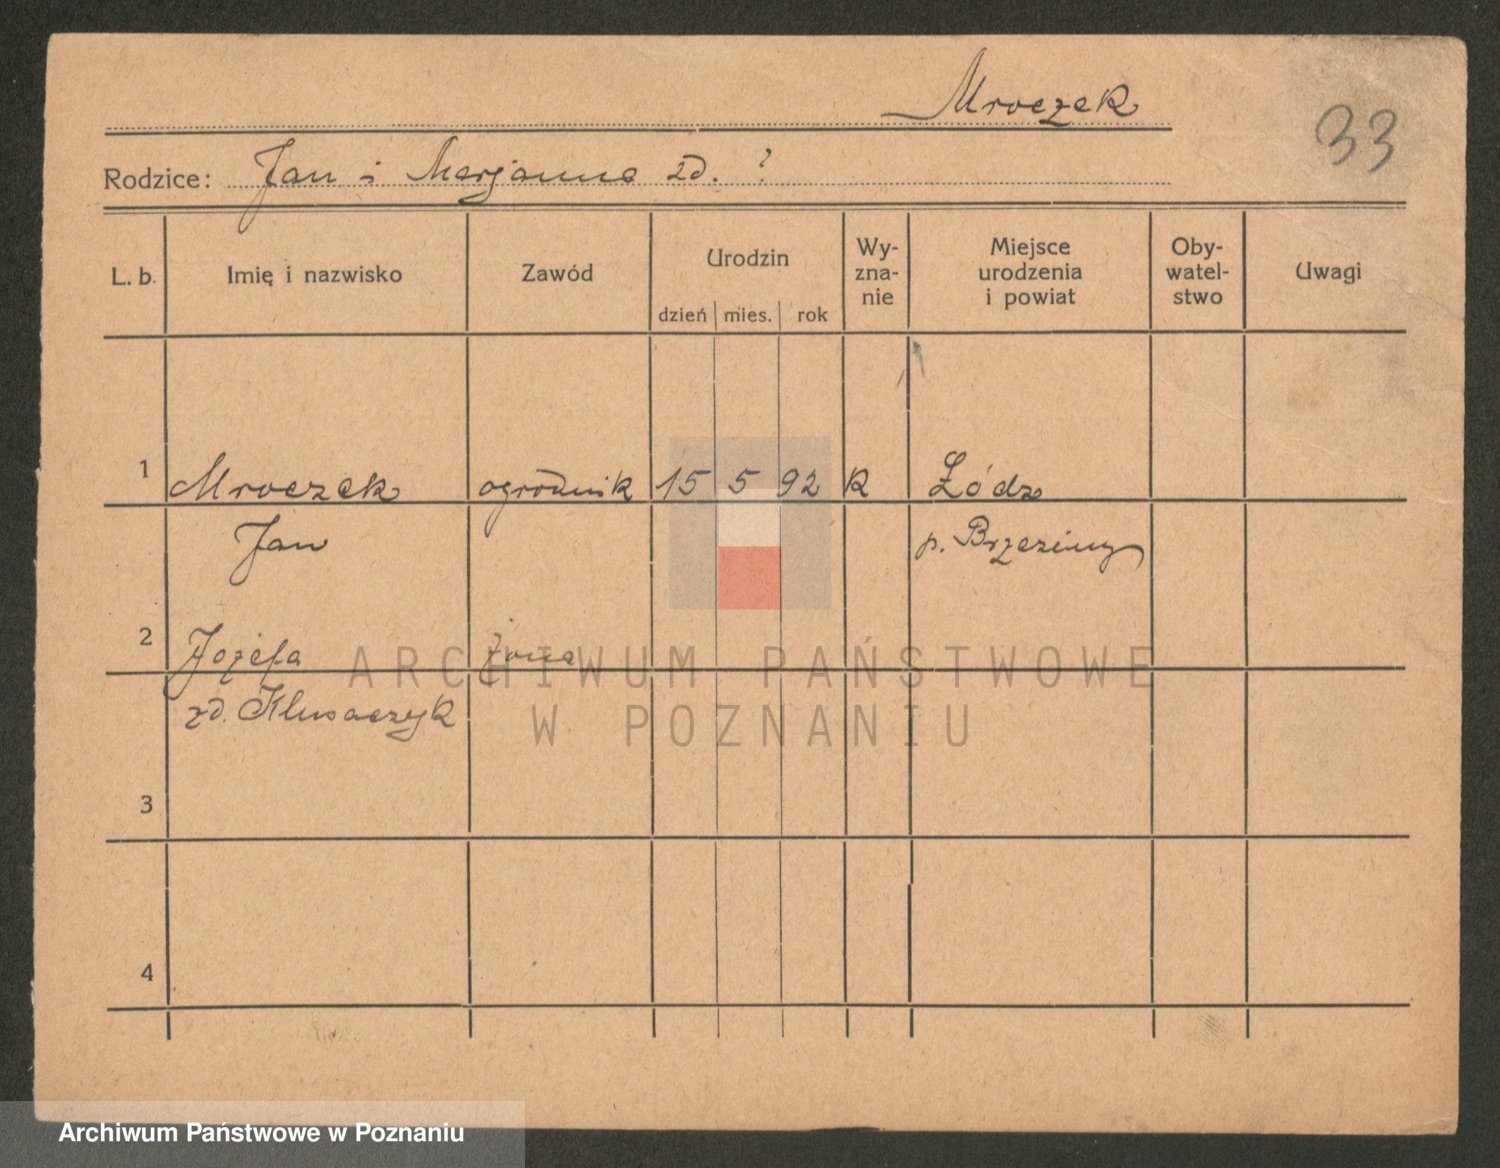 Mroczek
33
Rodzice: Jan i Marjanna zd. ?
L. b. Imię i nazwisko Zawód Urodzin dzień mies. rok Wy-zna-nie Miejsce urodzenia i powiat Oby-watel-stwo Uwagi
1 Mroczek ogrodnik 15 5 92 K Łódz
Jan p. Brzeziny
2 Józefa żona
zd. Klusaczyk
3
4
ARCHIWUM PAŃSTWOWE
W POZNANIU
Archiwum Państwowe w Poznaniu